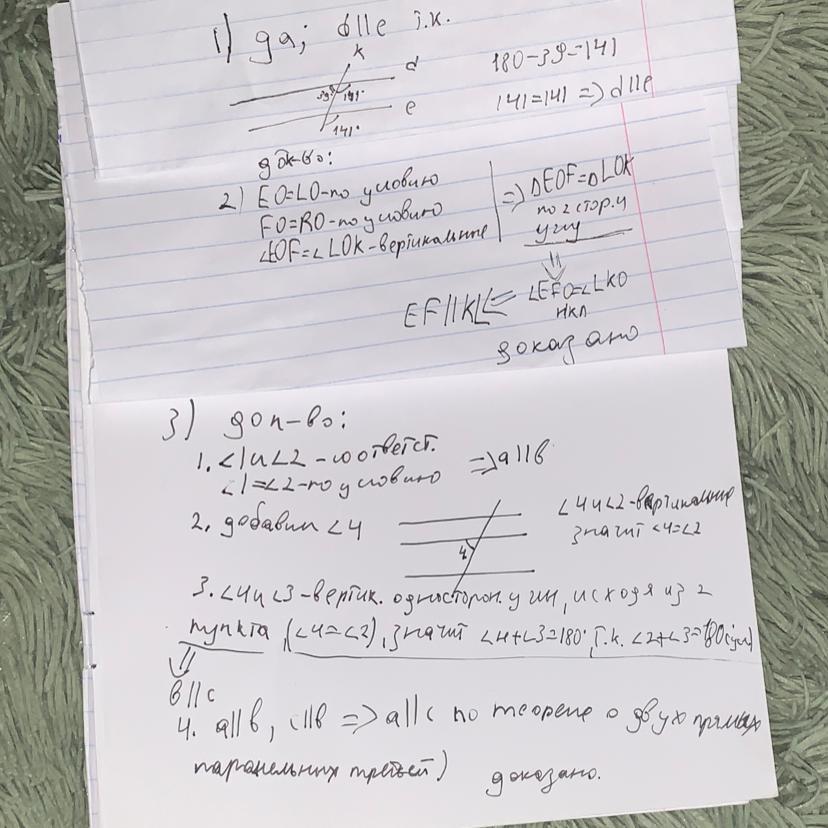 1) да; d||e т.к.
k
d
39° 141°
e
141°
180-39=141
141=141 => d||e
док-во:
2) EO=LO-по условию
FO=RO-по условию
∠EOF=∠LOK-вертикальные
=> ΔEOF=ΔLOK
по 2 стор. и
углу
∠EFO=∠LKO
НКЛ
EF||KL <=
доказано
3) док-во:
1. ∠1и∠2-соответст.
∠1=∠2-по условию
=> a||b
2. добавим ∠4
4
∠4и∠2-вертикальные
значит ∠4=∠2
3. ∠4и∠3-вертик. односторон. углы, исходя из 2
пункта (∠4=∠2), значит ∠4+∠3=180°, т.к. ∠2+∠3=180(усл)
b||c
4. a||b, c||b => a||c по теореме о двух прямых
паралельних третьей)
доказано.